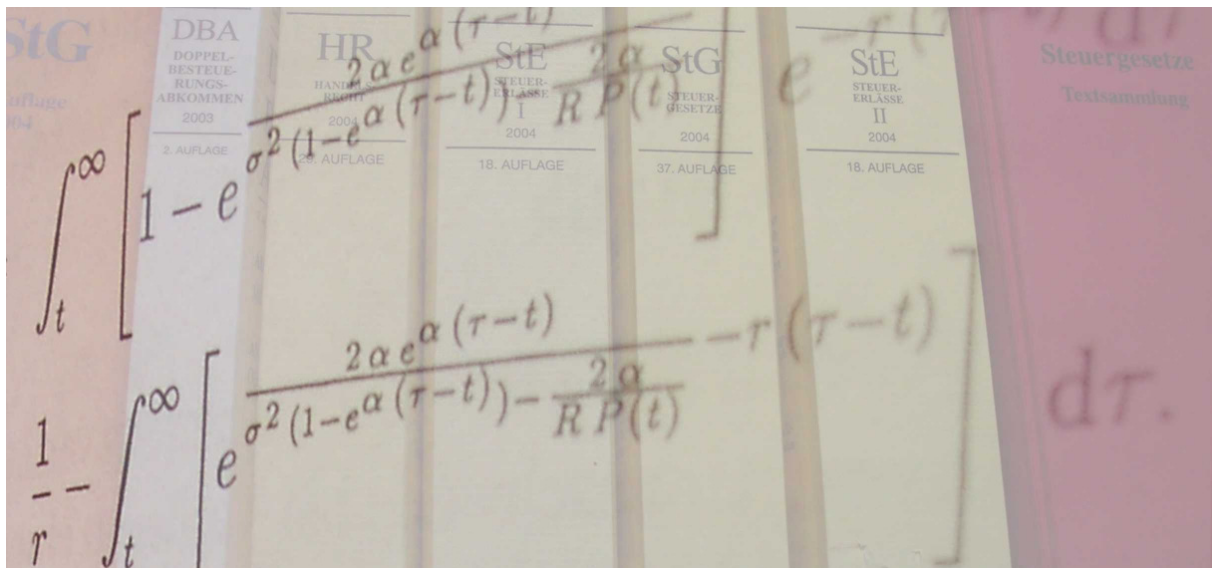 StG
Auflage
DBA
DOPPEL-
BESTEUE-
RUNGS-
ABKOMMEN
2003
2. AUFLAGE
HR
HANDELS-
RECHT
2004
AUFLAGE
StE
STEUER-
ERLÄSSE
I
2004
18. AUFLAGE
StG
STEUER-
GESETZE
2004
37. AUFLAGE
StE
STEUER-
ERLÄSSE
II
2004
18. AUFLAGE
Steuergesetze
Textsammlung
∫_t^∞ [1 − e^{\frac{2 α e^{α (τ−t)}}{σ^2 (1−e^{α (τ−t)}) − \frac{2 α}{R P(t)}}}] e^{−r (τ−t)} dτ
\frac{1}{r} − ∫_t^∞ [e^{\frac{2 α e^{α (τ−t)}}{σ^2 (1−e^{α (τ−t)}) − \frac{2 α}{R P(t)}} − r (τ−t)}] dτ.